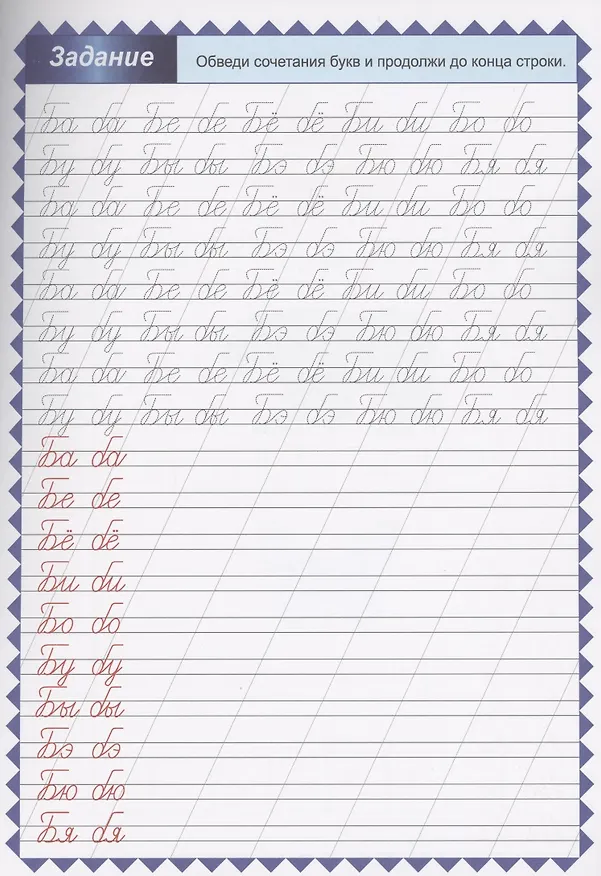 Задание
Обведи сочетания букв и продолжи до конца строки.
Ба ба Бе бе Бё бё Би би Бо бо
Бу бу Бы бы Бэ бэ Бю бю Бя бя
Ба ба Бе бе Бё бё Би би Бо бо
Бу бу Бы бы Бэ бэ Бю бю Бя бя
Ба ба Бе бе Бё бё Би би Бо бо
Бу бу Бы бы Бэ бэ Бю бю Бя бя
Ба ба Бе бе Бё бё Би би Бо бо
Бу бу Бы бы Бэ бэ Бю бю Бя бя
Ба ба
Бе бе
Бё бё
Би би
Бо бо
Бу бу
Бы бы
Бэ бэ
Бю бю
Бя бя